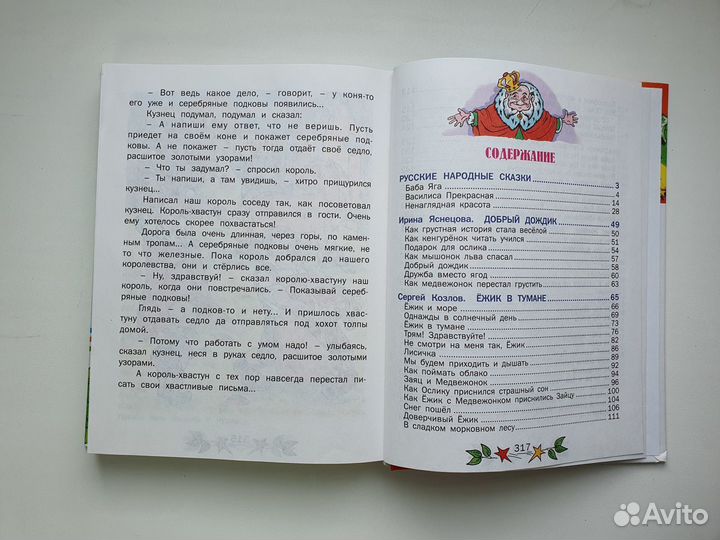 – Вот ведь какое дело, – говорит, – у коня-то
его уже и серебряные подковы появились...
Кузнец подумал, подумал и сказал:
– А напиши ему ответ, что не веришь. Пусть
приедет на своём коне и покажет серебряные под-
ковы. А не покажет – пусть тогда отдаёт своё седло,
расшитое золотыми узорами!
– Что ты задумал? – спросил король.
– Ты напиши, а там увидишь, – хитро прищурился
кузнец...
Написал наш король соседу так, как посоветовал
кузнец. Король-хвастун сразу отправился в гости. Очень
ему хотелось скорее похвастаться!
Дорога была очень длинная, через горы, по камен-
ным тропам... А серебряные подковы очень мягкие, не
то что железные. Пока король добрался до нашего
королевства, они и стёрлись все.
– Ну, здравствуй! – сказал королю-хвастуну наш
король, когда они повстречались. – Показывай сереб-
ряные подковы!
Глядь – а подков-то и нету... И пришлось хвас-
туну отдавать седло да отправляться под хохот толпы
домой.
– Потому что работать с умом надо! – улыбаясь,
сказал кузнец, неся в руках седло, расшитое золотыми
узорами.
А король-хвастун с тех пор навсегда перестал пи-
сать свои хвастливые письма...
СОДЕРЖАНИЕ
РУССКИЕ НАРОДНЫЕ СКАЗКИ 3
Баба Яга 4
Василиса Прекрасная 14
Ненаглядная красота 28
Ирина Яснецова. ДОБРЫЙ ДОЖДИК 49
Как грустная история стала весёлой 50
Как кенгурёнок читать учился 51
Подарок для ослика 54
Как мышонок льва спасал 57
Добрый дождик 58
Дружба вместо ягод 60
Как медвежонок перестал грустить 63
Сергей Козлов. ЁЖИК В ТУМАНЕ 65
Ёжик и море 66
Однажды в солнечный день 69
Ёжик в тумане 73
Трям! Здравствуйте! 76
Не смотри на меня так, Ёжик 82
Лисичка 86
Мы будем приходить и дышать 89
Как поймать облако 92
Заяц и Медвежонок 94
Как Ослику приснился страшный сон 96
Как Ёжик с Медвежонком приснились Зайцу 100
Снег пошёл 104
Доверчивый Ёжик 106
В сладком морковном лесу 111
317
Avito